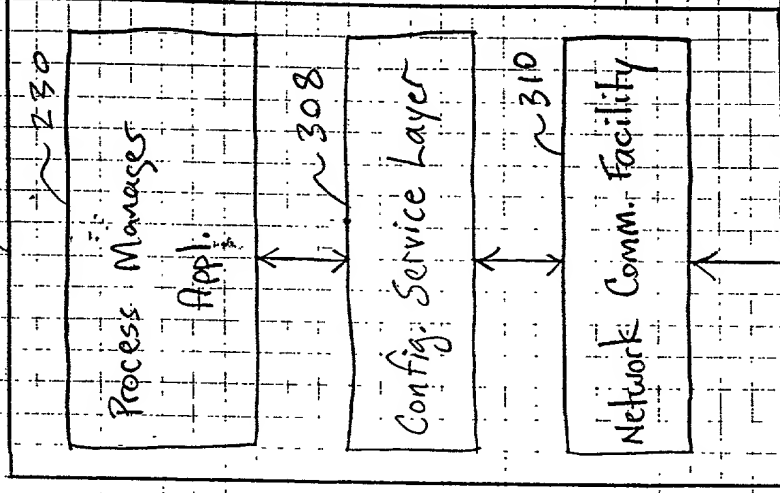 230
Process Manager
Appl.
308
Config. Service Layer
310
Network Comm. Facility